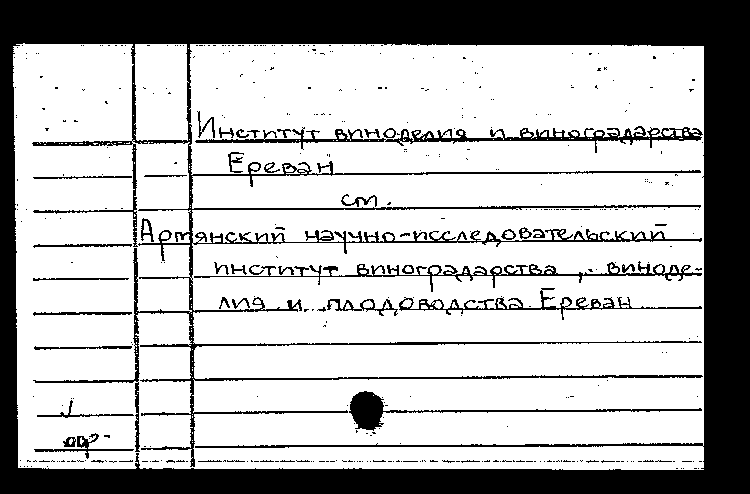 Институт виноделия и виноградарства
Ереван
ст.
Артянский научно-исследовательский
институт виноградарства, виноде-
лия и плодоводства Ереван